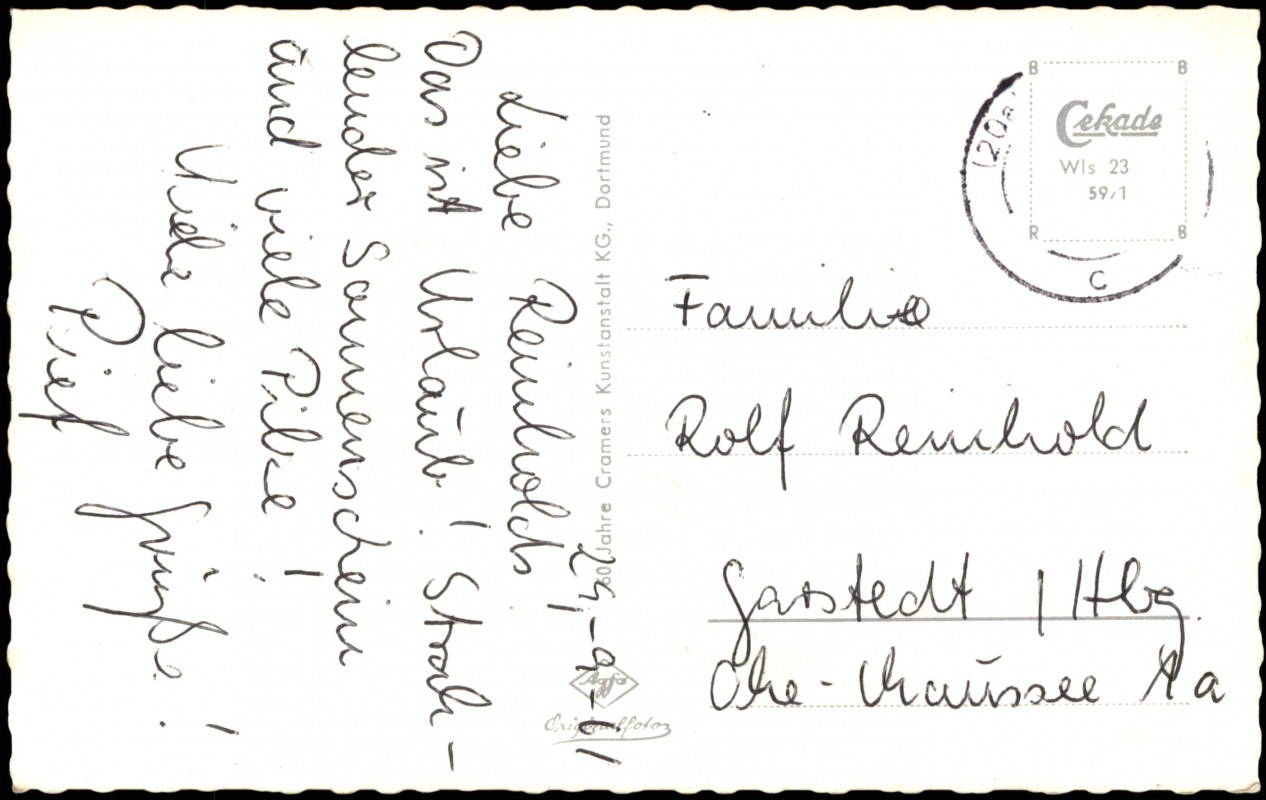 24.-9.-61
Liebe Reinholds!
Das ist Urlaub! Strah-
lender Sonnenschein
und viele Pilze!
Viele liebe Grüße!
60 Jahre Cramers Kunstanstalt KG., Dortmund
Agfa
Originalfoto
(20a
C
B B
Cekade
Wls 23
59/1
R B
Familie
Rolf Reinhold
Garstedt / Hbg.
Ohe-Chaussee 1a